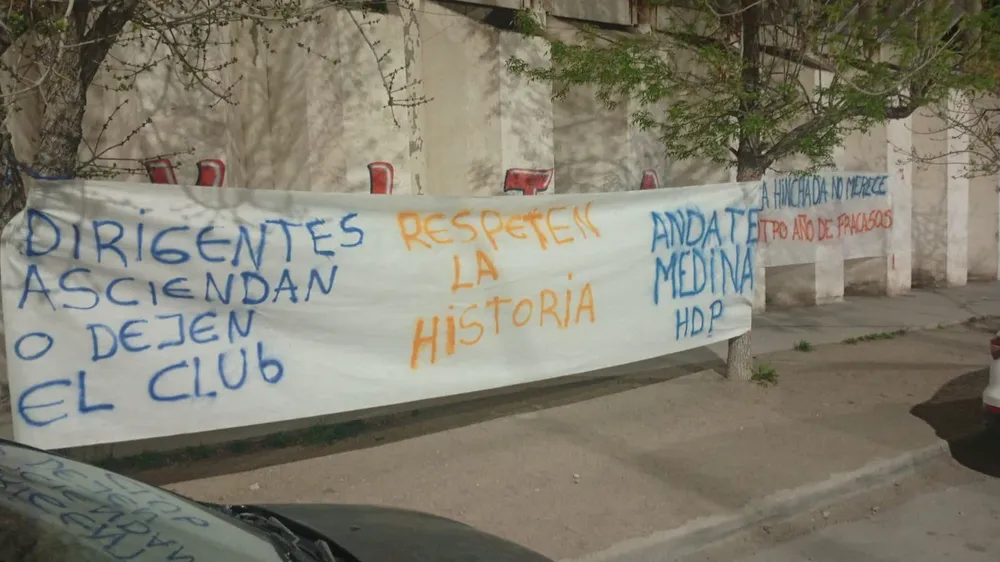 DIRIGENTES
ASCIENDAN
O DEJEN
EL CLUB
RESPETEN
LA
HISTORIA
ANDATE
MEDINA
HDP
A HINCHADA NO MERECE
TRO AÑO DE FRACASOS